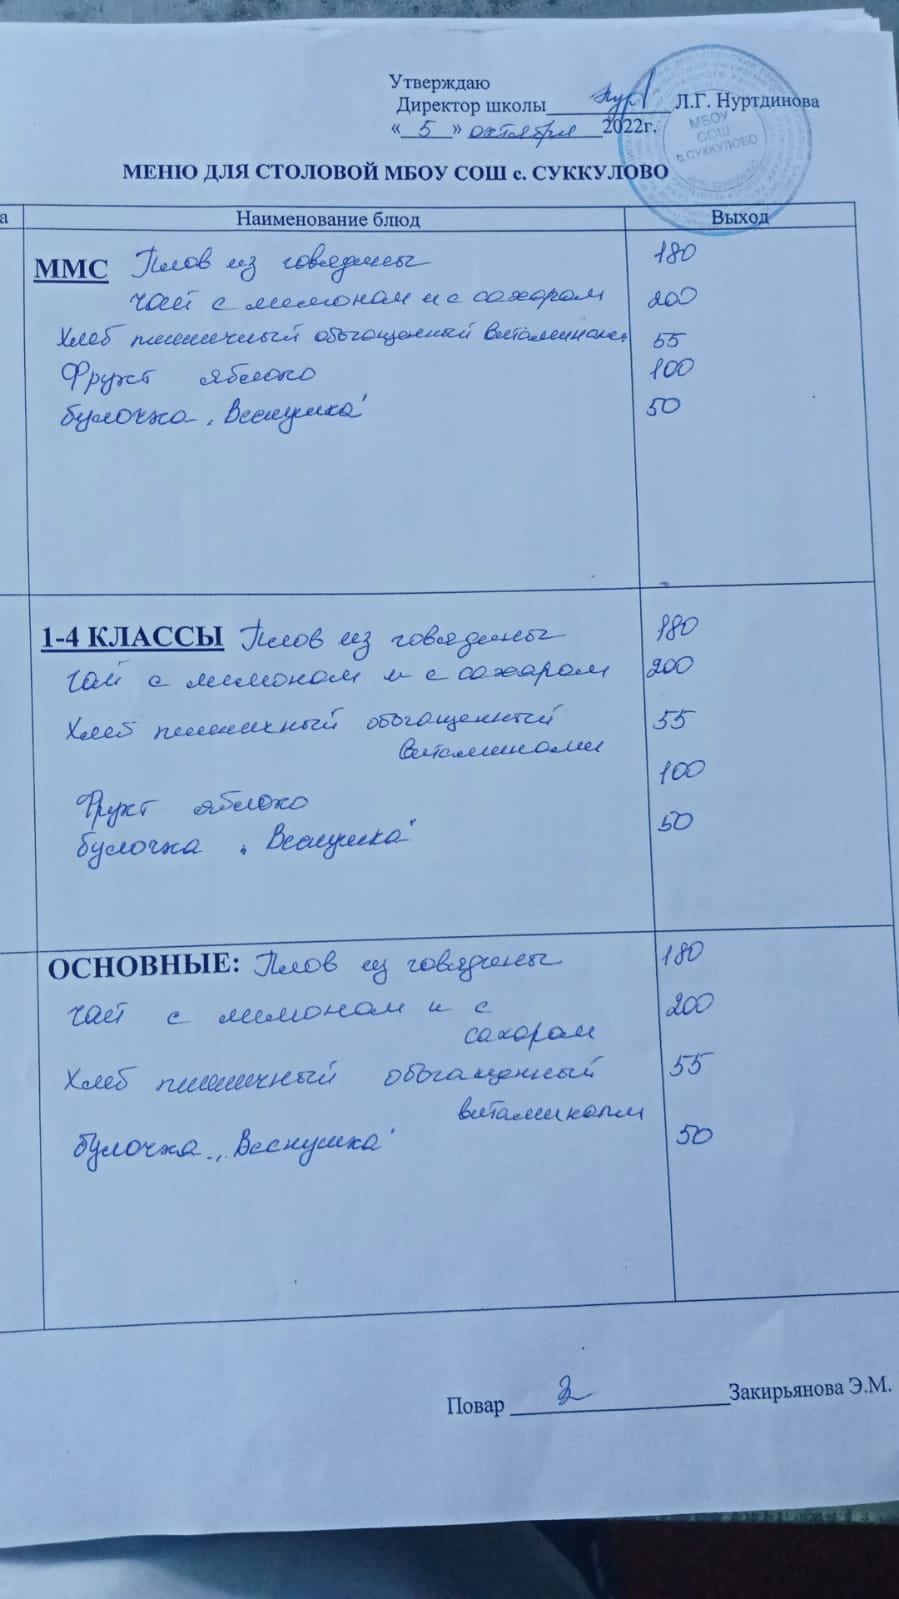 Утверждаю
Директор школы Л.Г. Нуртдинова
« 5 » октября 2022г.
МБОУ
СОШ
с. СУККУЛОВО
МЕНЮ ДЛЯ СТОЛОВОЙ МБОУ СОШ с. СУККУЛОВО
а Наименование блюд Выход
ММС Плов из говядины 180
чай с лимоном и с сахаром 200
Хлеб пшеничный обогащенный витаминами 55
Фрукт яблоко 100
булочка „Веснушка" 50
1-4 КЛАССЫ Плов из говядины 180
чай с лимоном и с сахаром 200
Хлеб пшеничный обогащенный 55
витаминами
Фрукт яблоко 100
булочка „Веснушка" 50
ОСНОВНЫЕ: Плов из говядины 180
чай с лимоном и с 200
сахаром
Хлеб пшеничный обогащенный 55
витаминами
булочка „Веснушка" 50
Повар Закирьянова Э.М.